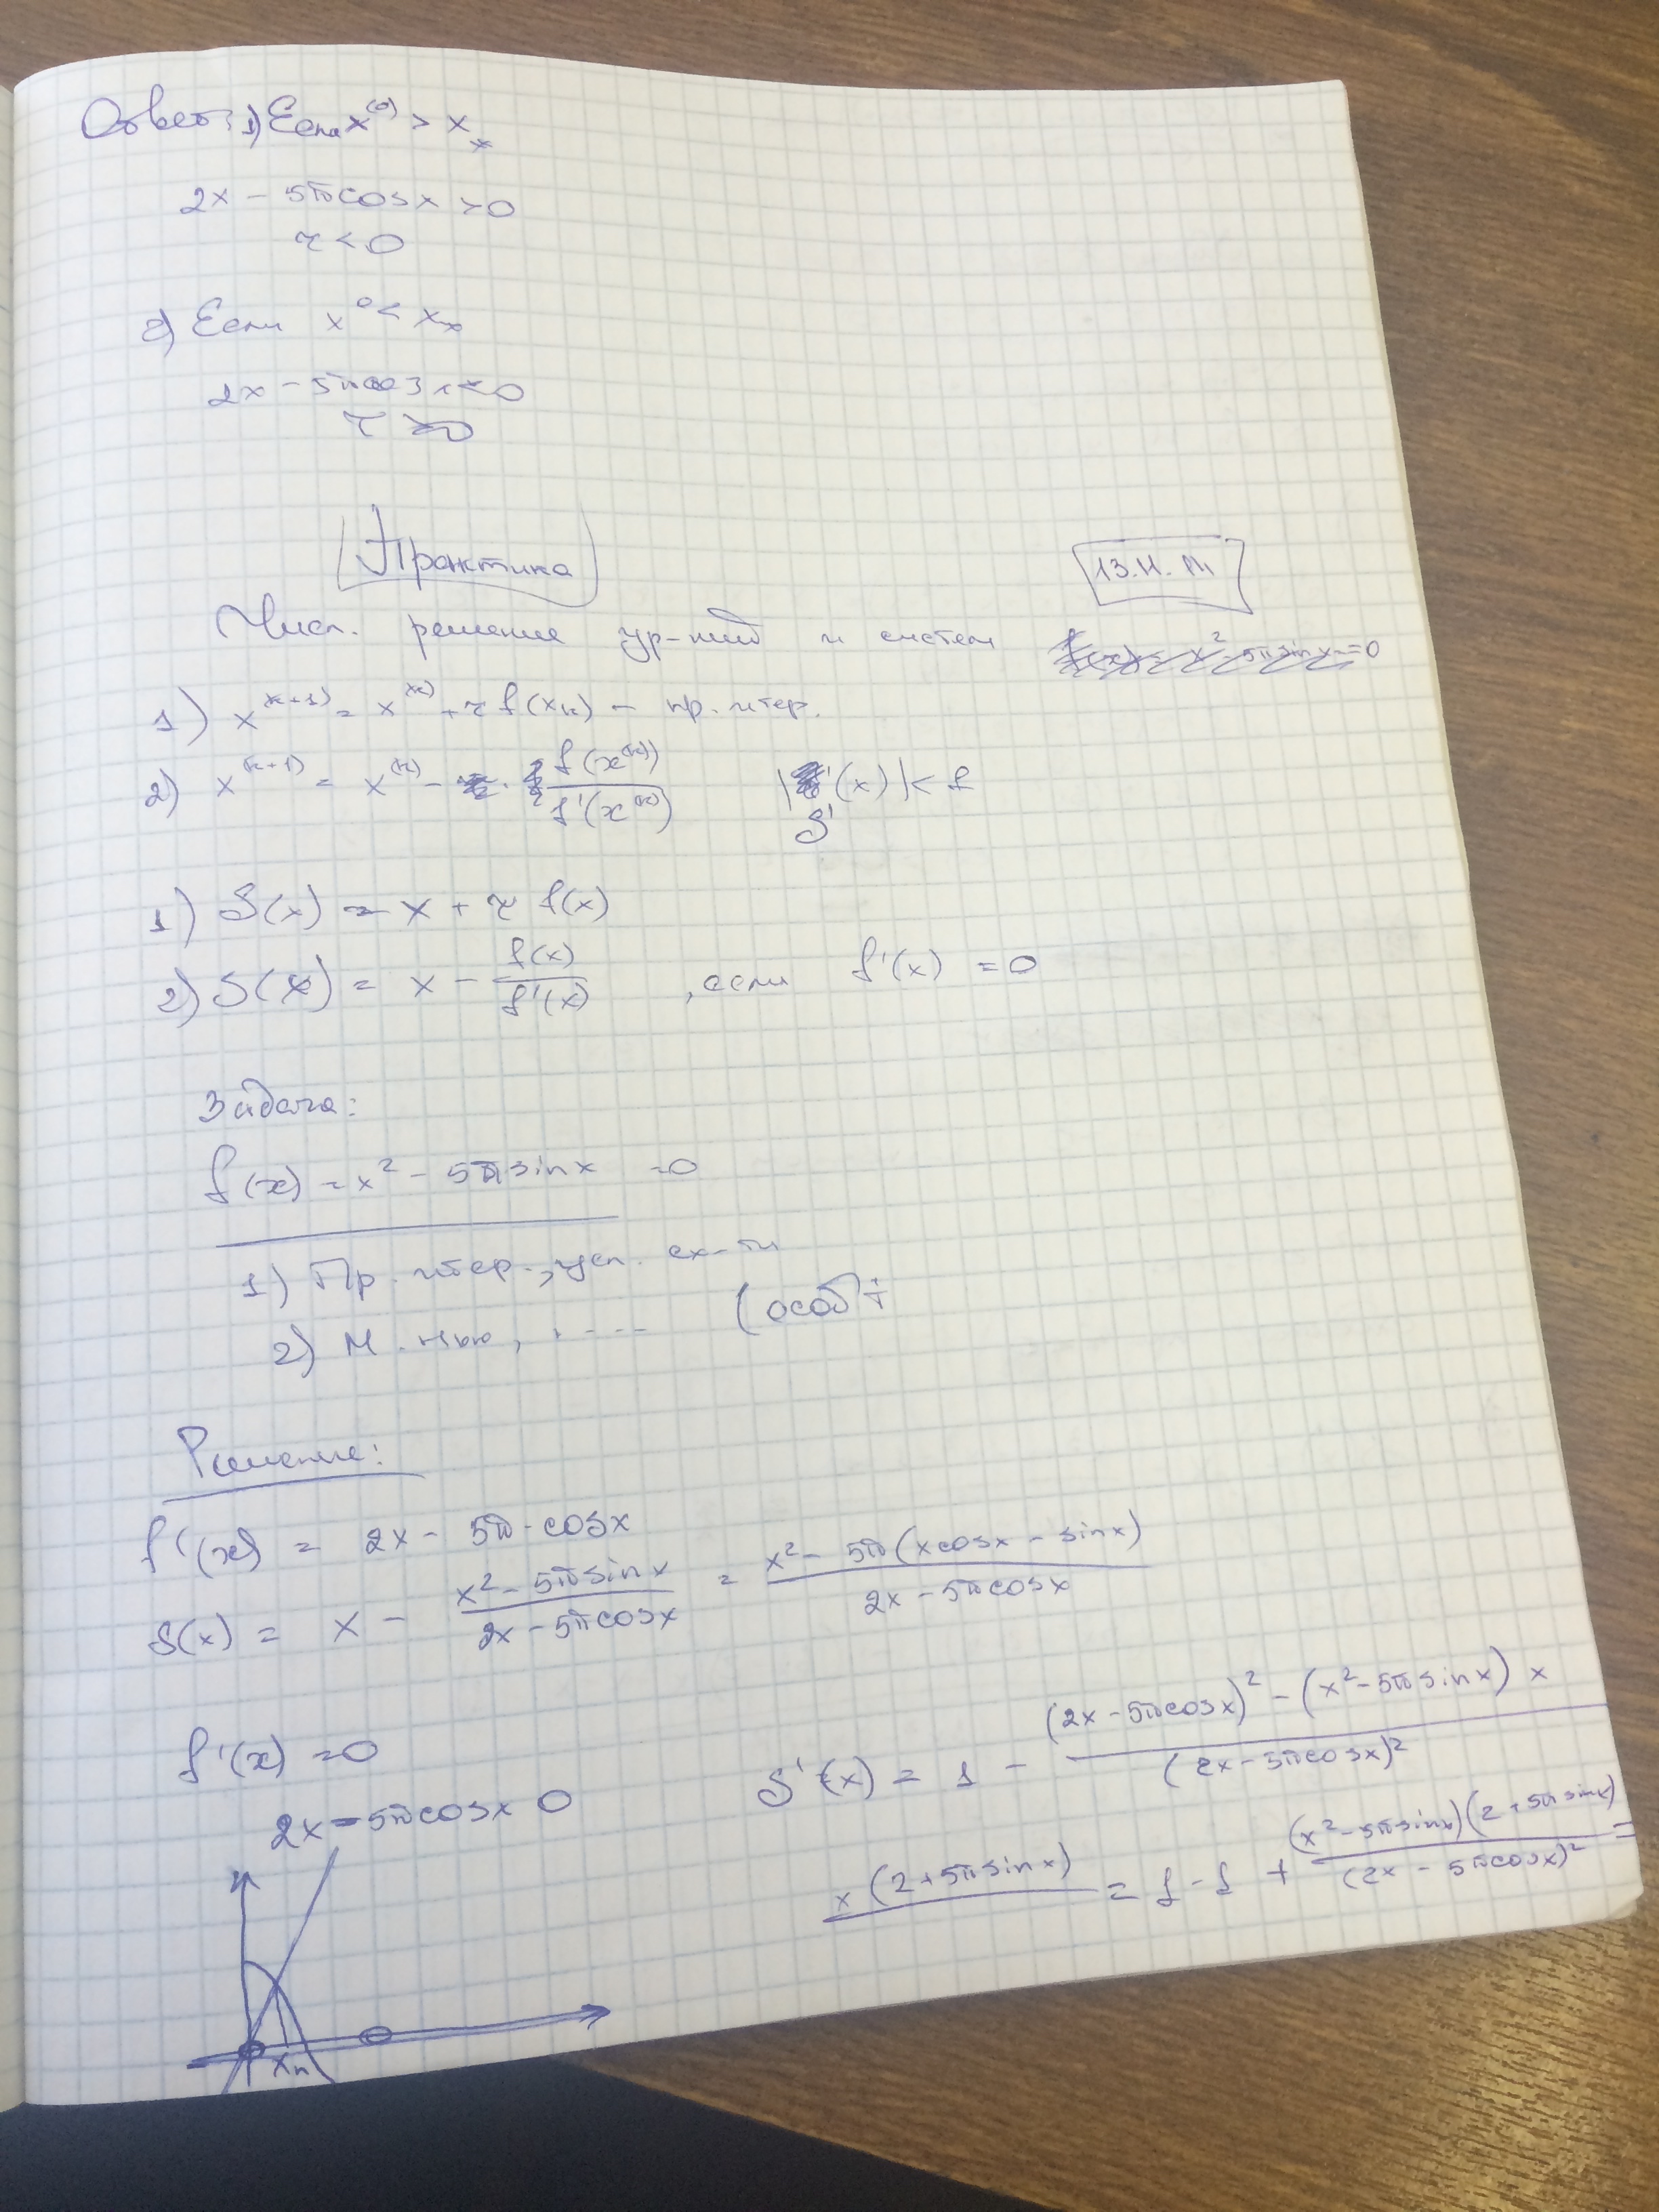 Ответ: 1) Если x^(0) > x_*
2x - 5π cosx > 0
τ < 0
2) Если x^0 < x_*
2x - 5π cosx < 0
τ > 0
Практика
13.11.
Числ. решение ур-ний и систем
1) x^(k+1) = x^(k) + τ f(x_k) - пр. итер.
2) x^(k+1) = x^(k) - f(x^(k)) / f'(x^(k)) | '(x) | < 1
S'
1) S(x) = x + τ f(x)
2) S(x) = x - f(x) / f'(x) , если f'(x) = 0
Задача:
f(x) = x^2 - 5π sinx = 0
1) Пр. итер., усл. сх-ти
2) М. Нью, .---- (особ
Решение:
f'(x) = 2x - 5π · cosx
S(x) = x - (x^2 - 5π sinx) / (2x - 5π cosx) = (x^2 - 5π(x cosx - sinx)) / (2x - 5π cosx)
f'(x) = 0
2x - 5π cosx 0
S'(x) = 1 - ((2x - 5π cosx)^2 - (x^2 - 5π sinx) x / (2x - 5π cosx)^2
x (2 + 5π sinx) = 1 - 1 + (x^2 - 5π sinx)(2 + 5π sinx) / (2x - 5π cosx)^2 =
x_n